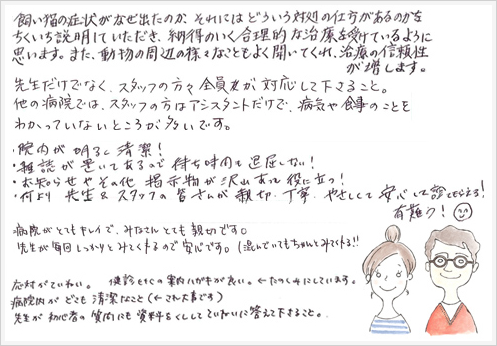 飼い猫の症状がなぜ出たのか、それにはどういう対処の仕方があるのかを
ちくいち説明していただき、納得のいく合理的な治療を受けているように
思います。また、動物の周辺の様々なこともよく聞いてくれ、治療の信頼性
が増します。
先生だけでなく、スタッフの方々全員が対応して下さること。
他の病院では、スタッフの方はアシスタントだけで、病気や食事のことを
わかっていないところが多いです。
・院内が明るく清潔!
・雑誌が置いてあるので待ち時間も退屈しない!
・お知らせやその他掲示物が沢山あって役に立つ!
・何より先生&スタッフの皆さんが親切、丁寧、やさしくて安心して診てもらえる!
有難ウ!
病院がとてもキレイで、みなさんとても親切です。
先生が毎回しっかりとみてくれるので安心です。(混んでいてもちゃんとみてくれる!!
応対がていねい。 健診etcの案内ハガキが良い。←たのしみにしています。
病院内がとても清潔なこと(←これ大事です)
先生が初心者の質問にも資料をくしして、ていねいに答えて下さること。